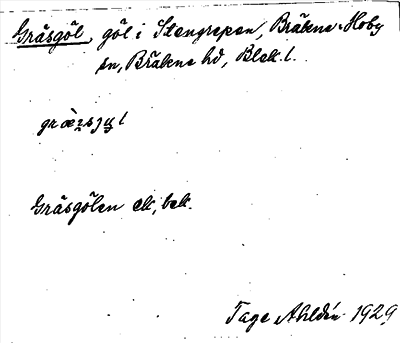 Gräsgöl, göl i Stengrepen, Bräkne-Hoby
sn, Bräkne hd, Blek. l.
Gräsgölen ek, bek.
Tage Ahldén 1929